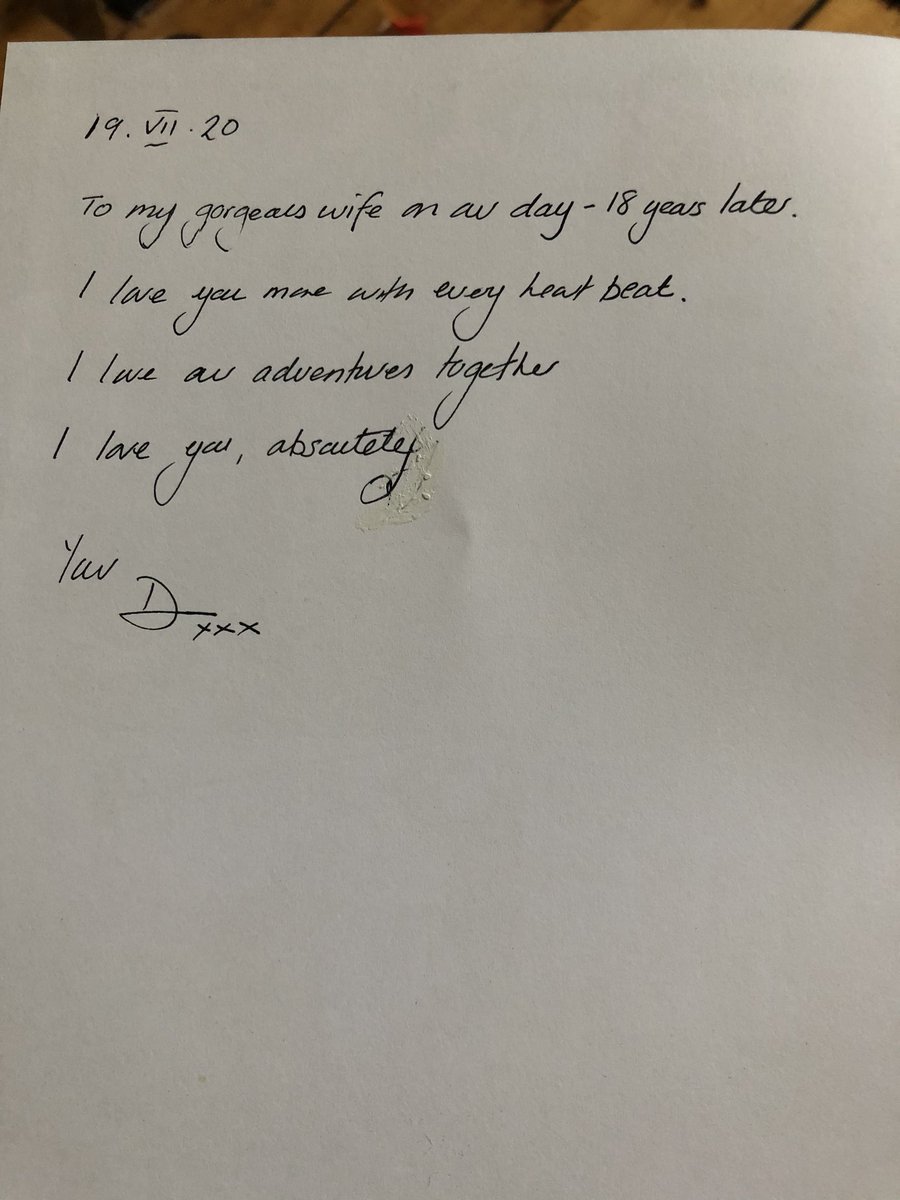 19. VII. 20
To my gorgeous wife on our day - 18 years later.
I love you more with every heart beat.
I love our adventures together
I love you, absolutely
Your
D xxx